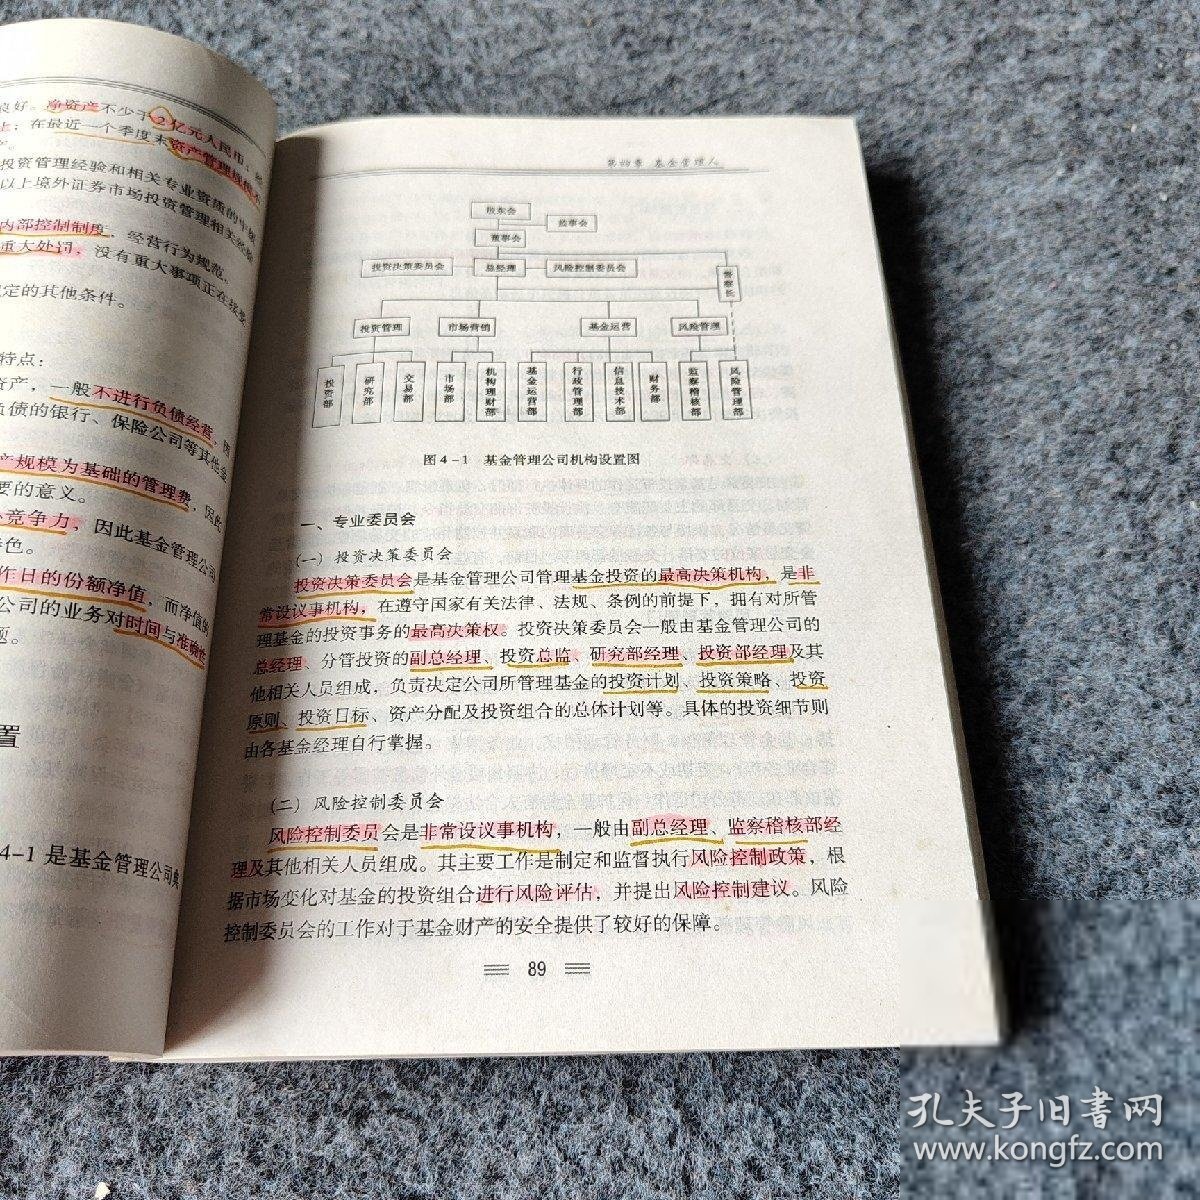 良好。净资产不少于2亿元人民币
上；在最近一个季度末资产管理规模不
投资管理经验和相关专业资质的中级
以上境外证券市场投资管理相关经验
内部控制制度，经营行为规范。
重大处罚，没有重大事项正在接受
定的其他条件。
特点：
资产，一般不进行负债经营，因
负债的银行、保险公司等其他金
产规模为基础的管理费，因此
要的意义。
竞争力，因此基金管理公司
特色。
作日的份额净值，而净值的
公司的业务对时间与准确性
题。
置
4-1 是基金管理公司典
第四章 基金管理人
股东会
监事会
董事会
投资决策委员会
总经理
风险控制委员会
督察长
投资管理
市场营销
基金运营
风险管理
投资部
研究部
交易部
市场部
机构理财部
基金运营部
行政管理部
信息技术部
财务部
监察稽核部
风险管理部
图 4-1 基金管理公司机构设置图
一、专业委员会
(一) 投资决策委员会
投资决策委员会是基金管理公司管理基金投资的最高决策机构，是非
常设议事机构，在遵守国家有关法律、法规、条例的前提下，拥有对所管
理基金的投资事务的最高决策权。投资决策委员会一般由基金管理公司的
总经理、分管投资的副总经理、投资总监、研究部经理、投资部经理及其
他相关人员组成，负责决定公司所管理基金的投资计划、投资策略、投资
原则、投资目标、资产分配及投资组合的总体计划等。具体的投资细节则
由各基金经理自行掌握。
(二) 风险控制委员会
风险控制委员会是非常设议事机构，一般由副总经理、监察稽核部经
理及其他相关人员组成。其主要工作是制定和监督执行风险控制政策，根
据市场变化对基金的投资组合进行风险评估，并提出风险控制建议。风险
控制委员会的工作对于基金财产的安全提供了较好的保障。
89
孔夫子旧书网
www.kongfz.com